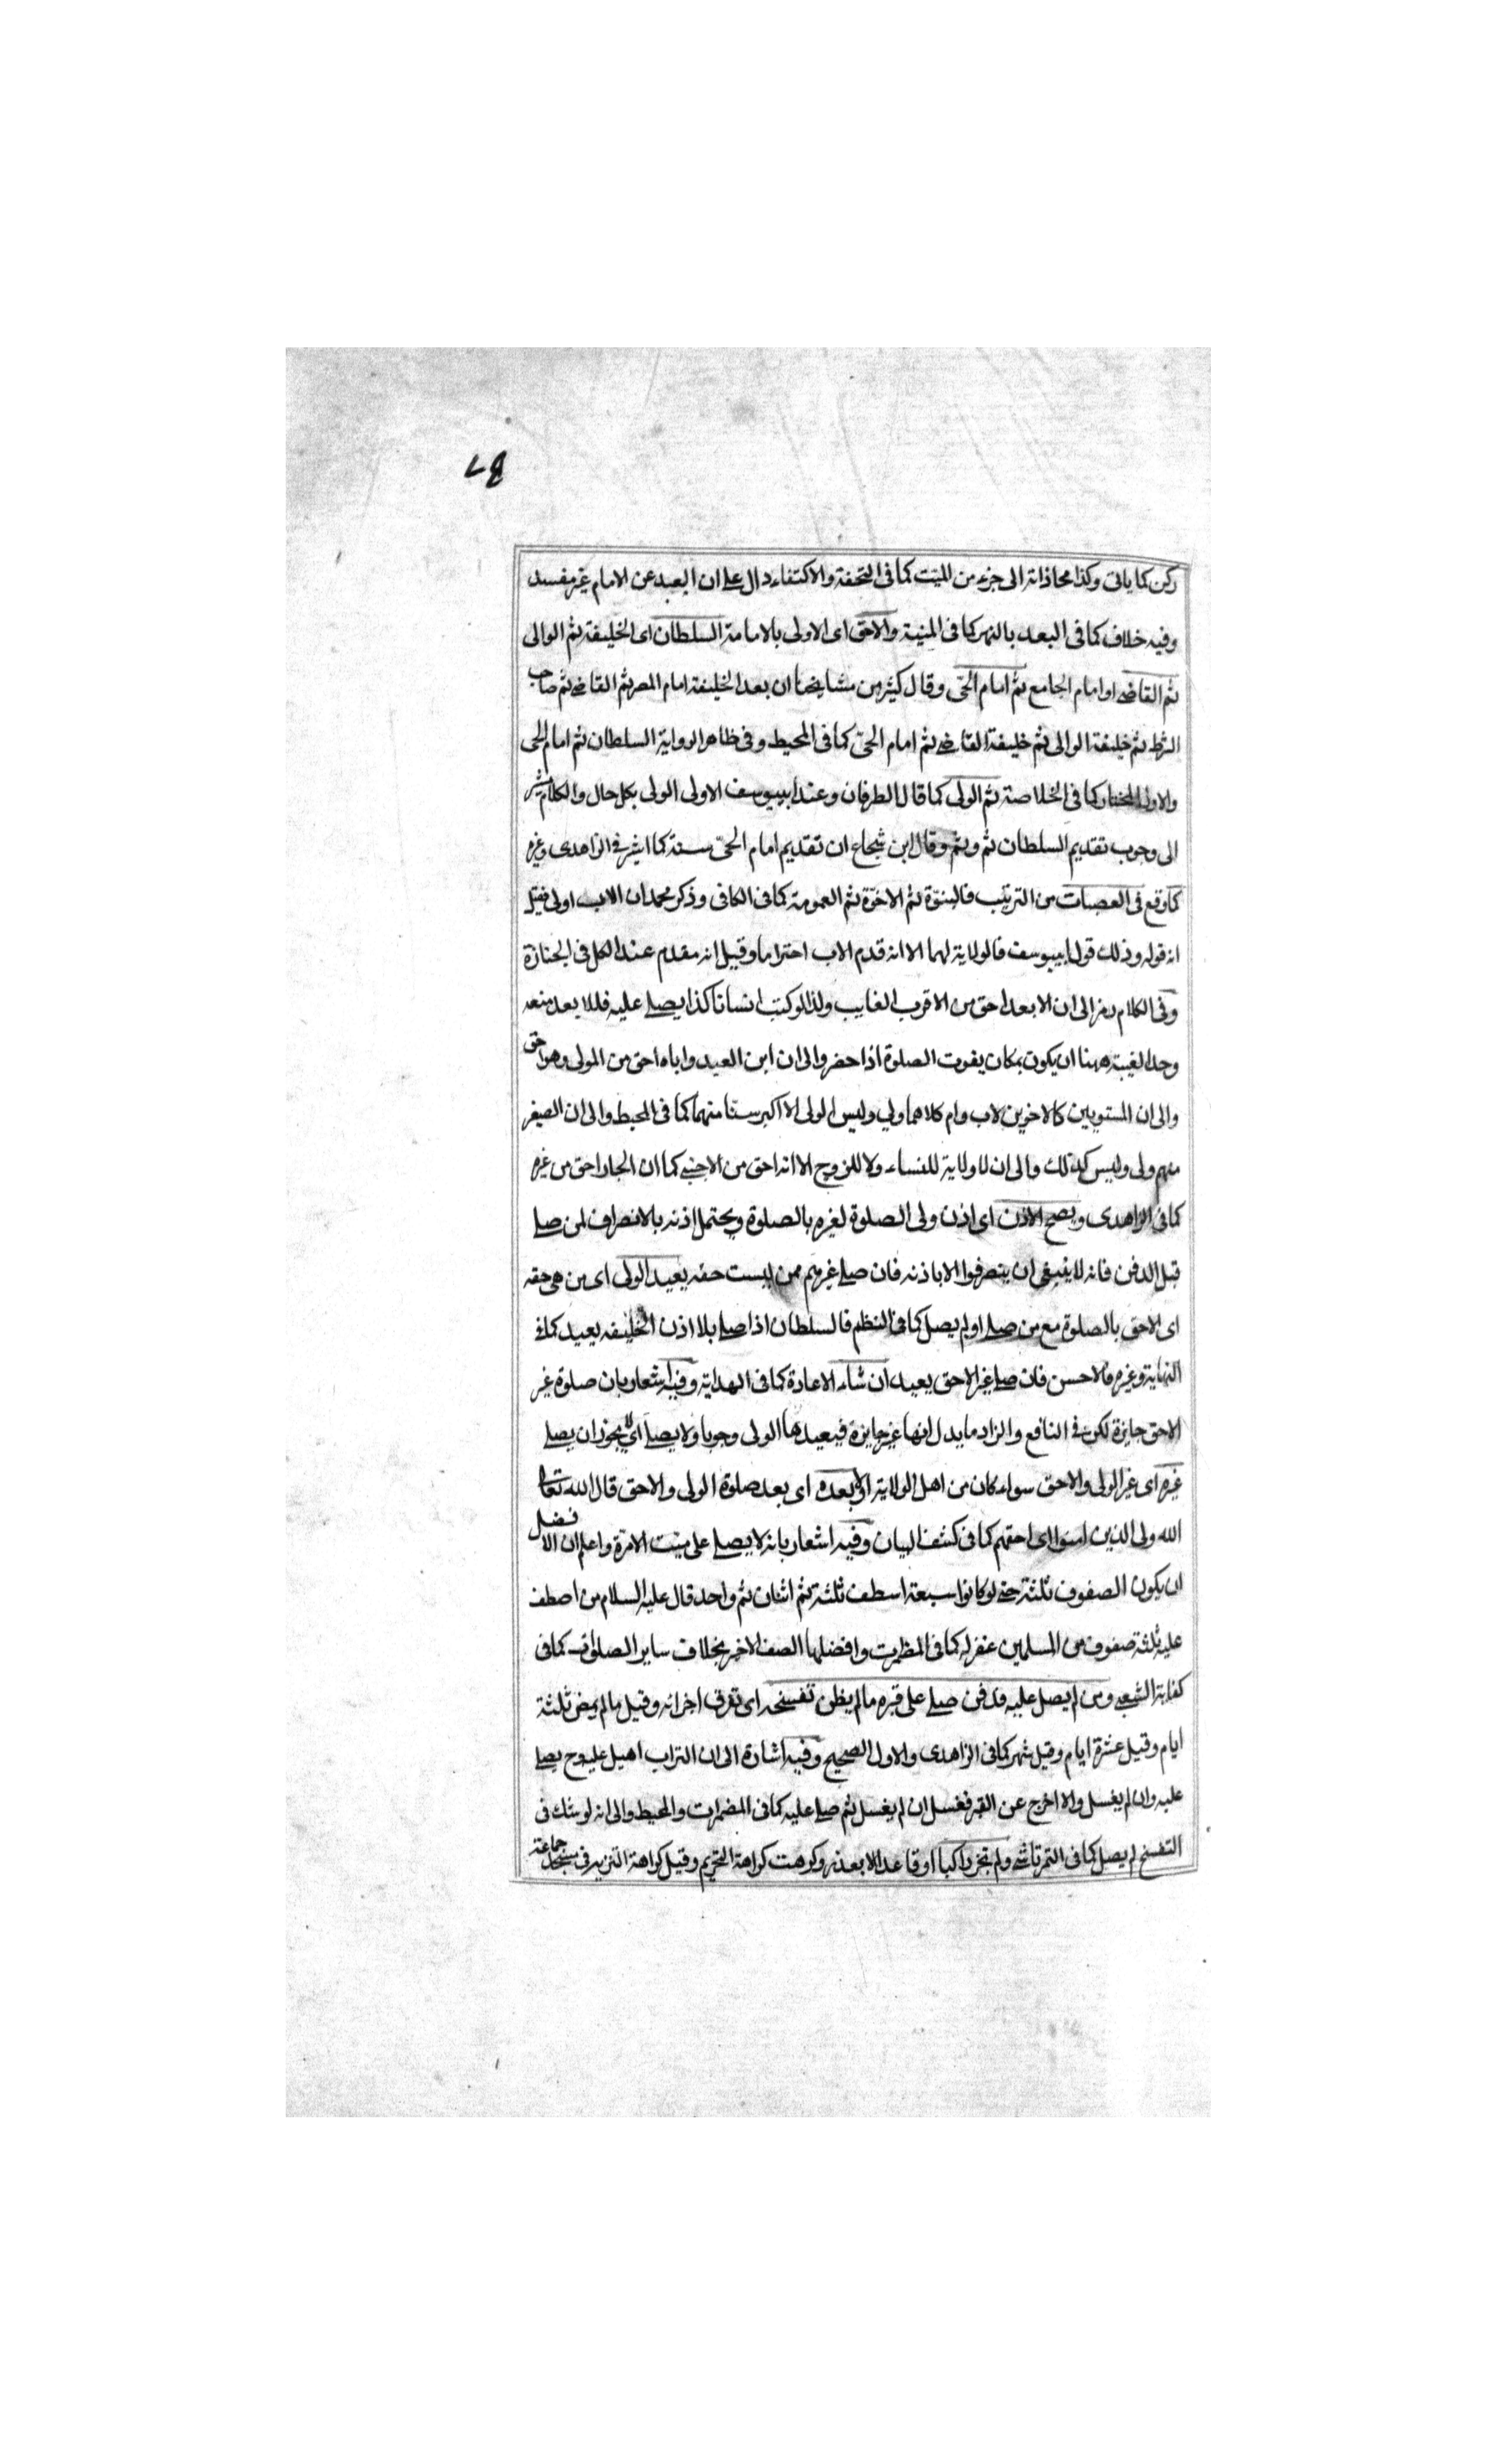 ركن كما ياتى وكذا محاذاته الى جزء من الميت كما فى التحفة والاكتفاء دال على ان البعد عن الامام غير مفسد
وفيه خلاف كما فى البعد بالنهر كما فى المنية والاحق اى الاولى بالامامة السلطان اى الخليفة ثم الوالى
ثم القاضى او امام الجامع ثم امام الحى وقال كثير من مشايخنا ان بعد الخليفة امام المصر ثم القاضى ثم صاحب
الشرط ثم خليفة الوالى ثم خليفة القاضى ثم امام الحى كما فى المحيط وفى ظاهر الرواية السلطان ثم امام الحى
والاولى المختار كما فى الخلاصة ثم الولى كما قال الطرفان وعند ابييوسف الاولى الولى بكل حال والكلام مشير
الى وجوب تقديم السلطان ثم وثم وقال ابن شجاع ان تقديم امام الحى سنة كما اشير فى الزاهدى وغيره
كما وقع فى العصبات من الترتيب فالبنوة ثم الاخوة ثم العمومة كما فى الكافى وذكر محمد ان الاب اولى فقيل
انه قوله وذلك قول ابييوسف فالولاية لهما الا انه قدم الاب احتراما وقيل انه مقدم عند الكل فى الجنازة
وفى الكلام رمز الى ان الابعد احق من الاقرب الغايب ولذا لو كتب انسانا كذا يصلى عليه فللابعد منعه
وحد الغيبة ههنا ان يكون بمكان يفوت الصلوة اذا حضر والى ان ابن العبد واباه احق من المولى وهو احق
والى ان المستويين كالاخوين لاب وام كلاهما ولي وليس الولى الا اكبر سنا منهما كما فى المحيط والى ان الصغير
منهم ولى وليس كذلك والى ان لا ولاية للنساء ولا للزوج الا انه احق من الاجنبى كما ان الجار احق من غيره
كما فى الزاهدى ويصح الاذن اى اذن ولى الصلوة لغيره بالصلوة ويحتمل اذنه بالانصراف لمن صلى
قبل الدفن فانه لا ينبغى ان ينصرفوا الا باذنه فان صلى غيرهم ممن ليست حقه يعيد الولى اى من هى حقه
اى الاحق بالصلوة مع من صلى او لم يصل كما فى النظم فالسلطان اذا صلى بلا اذن الخليفه يعيد كما فى
النهاية وغيره فالاحسن فان صلى غير الاحق يعيد ان شاء الاعادة كما فى الهداية وفيه اشعار بان صلوة غير
الاحق جايزة لكن فى النافع والزاد ما يدل انها غير جايزة فيعيدها الولى وجوبا ولا يصلى اى لا يجوز ان يصلى
غيره اى غير الولى والاحق سواء كان من اهل الولاية او لا بعده اى بعد صلوة الولى والاحق قال الله تعالى
الله ولى الذين امنوا اى احقهم كما فى كشف البيان وفيه اشعار بانه لا يصلى على ميت الا مرة واعلم ان الافضل
ان يكون الصفوف ثلثة حتى لو كانوا سبعة اسطف ثلثة ثم اثنان ثم واحد قال عليه السلام من اصطف
عليه ثلثة صفوف من المسلمين غفر له كما فى المظمرت وافضلها الصف الاخير بخلاف ساير الصلوات كما فى
كفاية الشعبى ومن لم يصل عليه فدفن صلى على قبره ما لم يظن تفسخه اى تفرق اجزائه وقيل ما لم يمض ثلثة
ايام وقيل عشرة ايام وقيل شهر كما فى الزاهدى والاول الصحيح وفيه اشارة الى ان التراب اهيل عليه وح يصلى
عليه وان لم يغسل والا اخرج عن القبر فغسل ان لم يغسل ثم صلى عليه كما فى المضمرات والمحيط والى انه لو شك فى
التفسخ لم يصل كما فى التمرتاشى ولم تجز راكبا او قاعدا الا بعذر وكرهت كراهة التحريم وقيل كراهة التنزيه فى مسجد جماعة